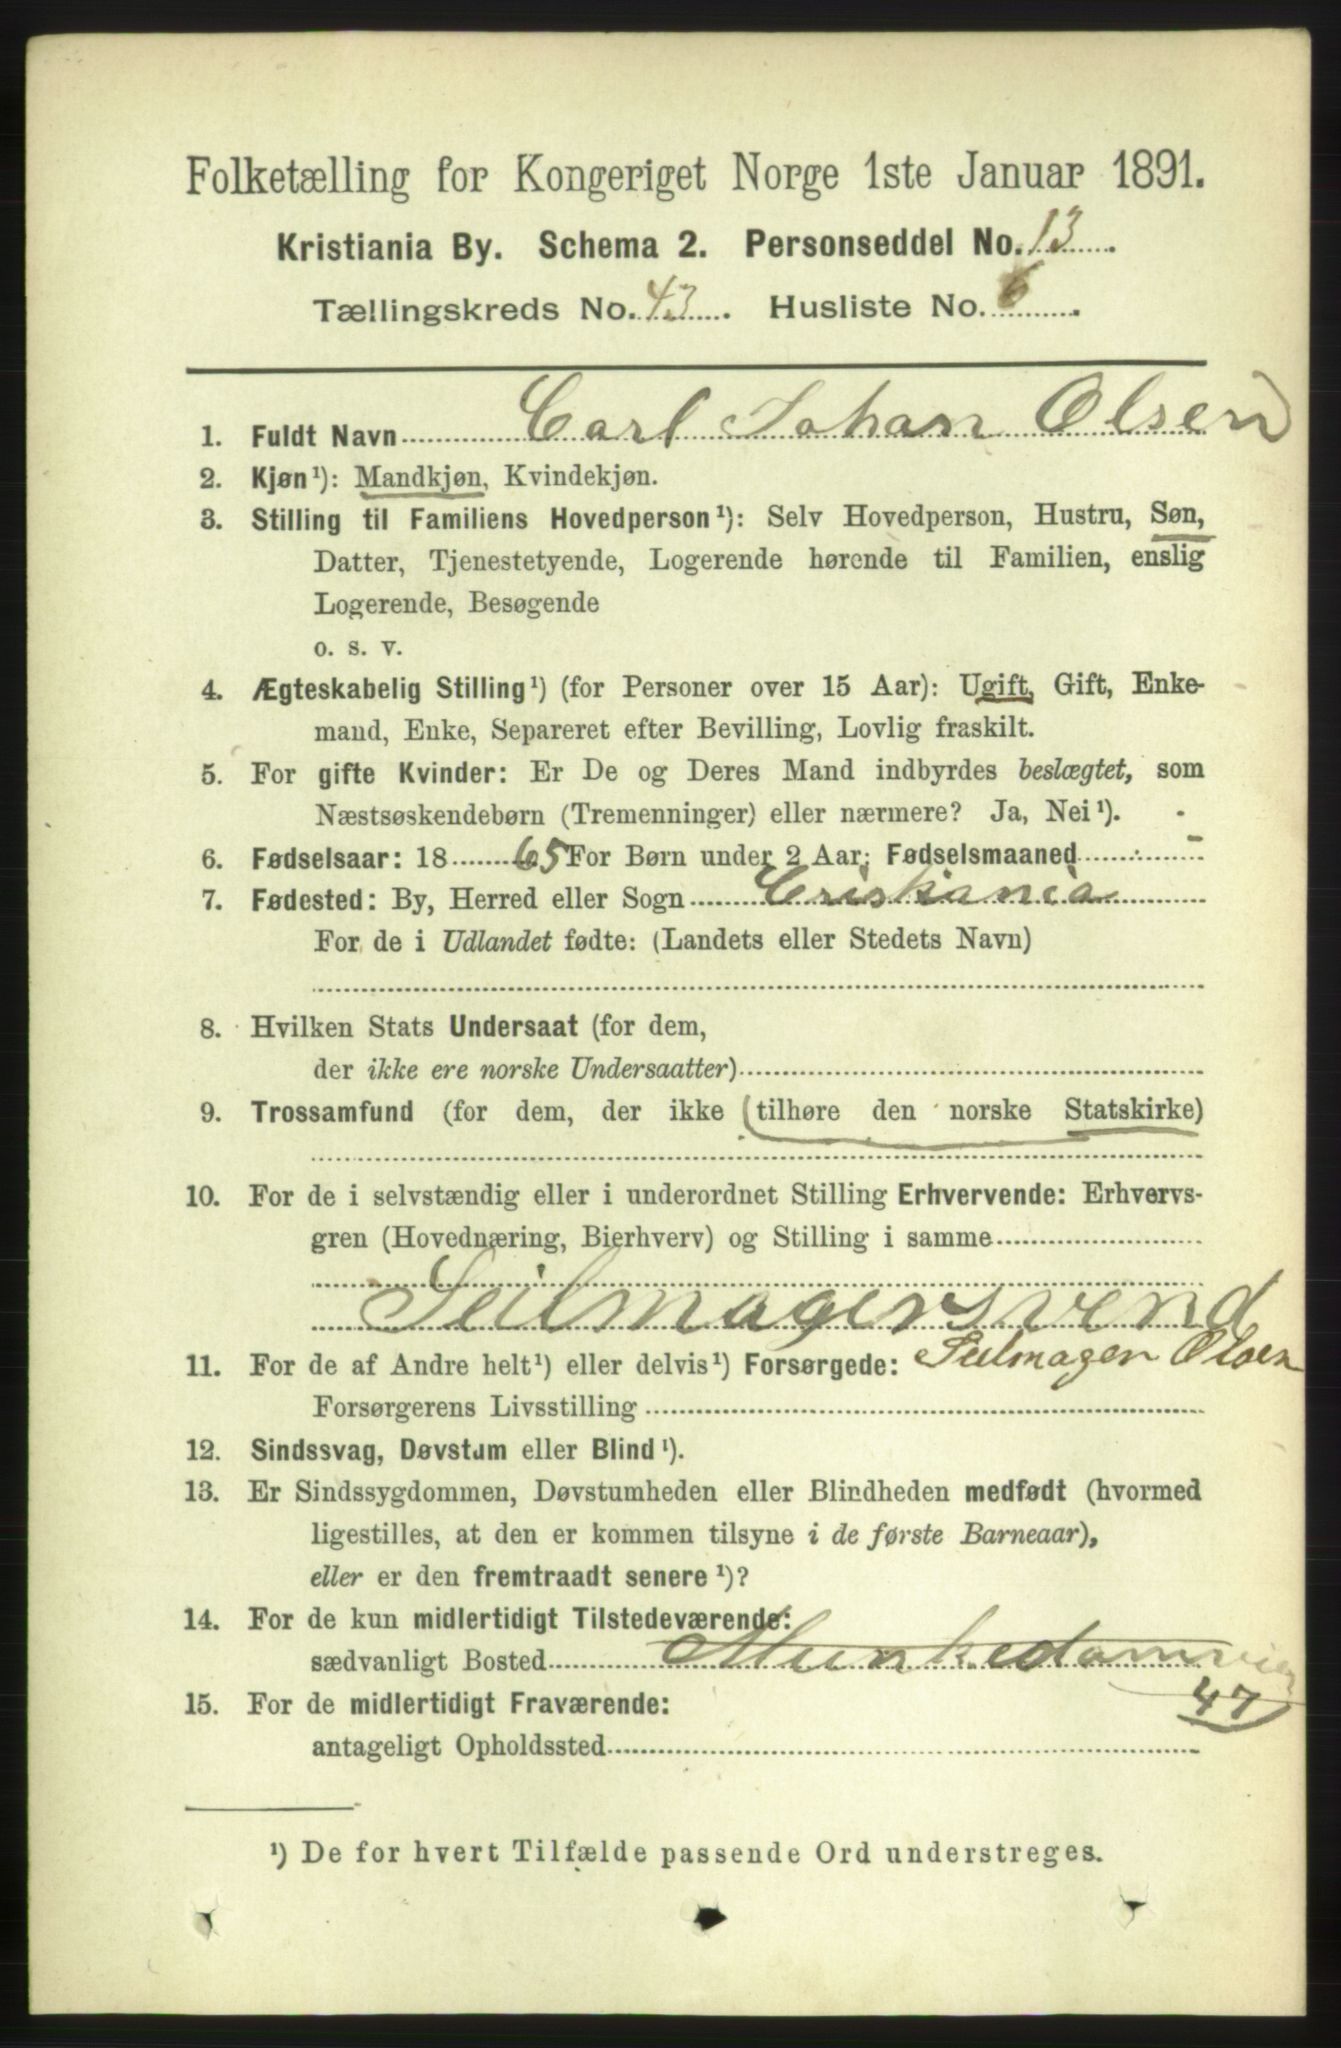 Folketælling for Kongeriget Norge 1ste Januar 1891.
Kristiania By. Schema 2. Personseddel No. 13
Tællingskreds No. 43. Husliste No. 6.
1. Fuldt Navn Carl Johan Olsen
2. Kjøn¹): Mandkjøn, Kvindekjøn.
3. Stilling til Familiens Hovedperson¹): Selv Hovedperson, Hustru, Søn,
Datter, Tjenestetyende, Logerende hørende til Familien, enslig
Logerende, Besøgende
o. s. v.
4. Ægteskabelig Stilling¹) (for Personer over 15 Aar): Ugift, Gift, Enke-
mand, Enke, Separeret efter Bevilling, Lovlig fraskilt.
5. For gifte Kvinder: Er De og Deres Mand indbyrdes beslægtet, som
Næstsøskendebørn (Tremenninger) eller nærmere? Ja, Nei¹). -
6. Fødselsaar: 18 65 For Børn under 2 Aar: Fødselsmaaned -
7. Fødested: By, Herred eller Sogn Cristiania
For de i Udlandet fødte: (Landets eller Stedets Navn)
8. Hvilken Stats Undersaat (for dem,
der ikke ere norske Undersaatter)
9. Trossamfund (for dem, der ikke (tilhøre den norske Statskirke)
10. For de i selvstændig eller i underordnet Stilling Erhvervende: Erhvervs-
gren (Hovednæring, Bierhverv) og Stilling i samme
Seilmagersvend
11. For de af Andre helt¹) eller delvis¹) Forsørgede: Seilmager Olsen
Forsørgerens Livsstilling
12. Sindssvag, Døvstum eller Blind¹).
13. Er Sindssygdommen, Døvstumheden eller Blindheden medfødt (hvormed
ligestilles, at den er kommen tilsyne i de første Barneaar),
eller er den fremtraadt senere¹)?
14. For de kun midlertidigt Tilstedeværende:
sædvanligt Bosted Munkedamsveien
47
15. For de midlertidigt Fraværende:
antageligt Opholdssted
¹) De for hvert Tilfælde passende Ord understreges.